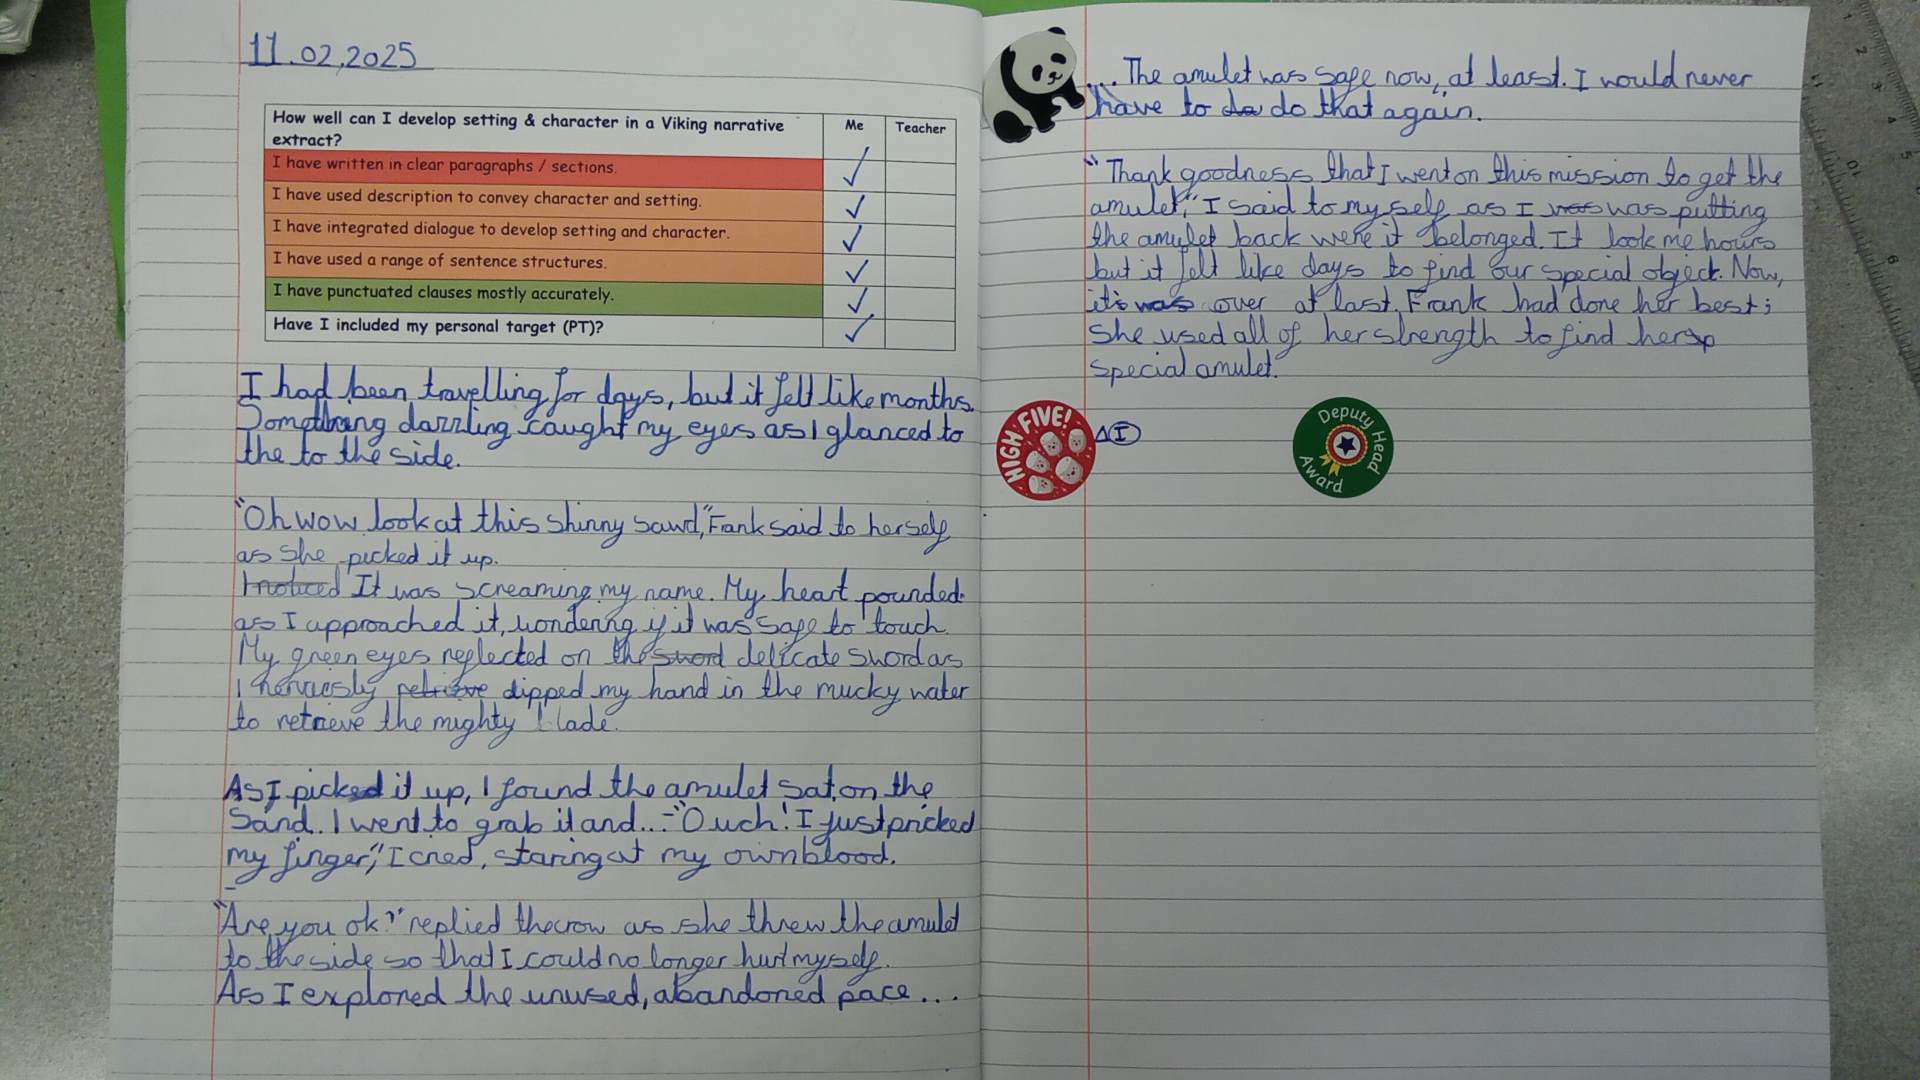 11.02.2025
How well can I develop setting & character in a Viking narrative extract?
Me
Teacher
I have written in clear paragraphs / sections.
I have used description to convey character and setting.
I have integrated dialogue to develop setting and character.
I have used a range of sentence structures.
I have punctuated clauses mostly accurately.
Have I included my personal target (PT)?
I had been travelling for days, but it felt like months.
Something dazzling caught my eyes as I glanced to
the to the side.
"Oh wow look at this shinny sawd," Frank said to herself
as she picked it up.
I noticed It was screaming my name. My heart pounded
as I approached it, wondering if it was safe to touch.
My green eyes reflected on the sword delicate sword as
I nervously retrieve dipped my hand in the mucky water
to retrieve the mighty blade.
As I picked it up, I found the amulet sat on the
sand. I went to grab it and...-"Ouch! I just pricked
my finger," I cried, staring at my own blood.
"Are you ok?" replied the crow as she threw the amulet
to the side so that I could no longer hurt myself.
As I explored the unused, abandoned pace...
... The amulet was safe now, at least. I would never
have to do do that again.
"Thank goodness that I went on this mission to get the
amulet," I said to my self as I was was putting
the amulet back were it belonged. It took me hours
but it felt like days to find our special object. Now,
it's was over at last. Frank had done her best;
she used all of her strength to find her sp
special amulet.
HIGH FIVE!
I
Deputy Head
Award